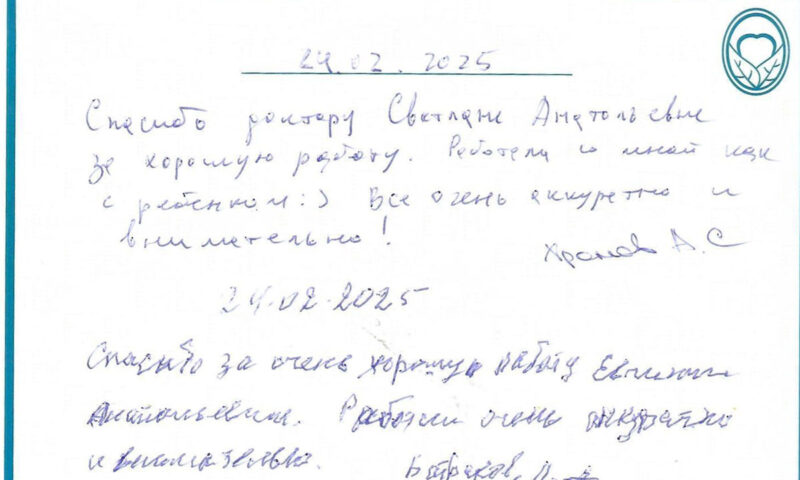 24.02.2025
Спасибо доктору Светлане Анатольевне
за хорошую работу. Работали со мной как
с ребенком :) Все очень аккуратно и
внимательно!
Хромов А.С
24.02.2025
Спасибо за очень хорошую работу
Анатольевне. Работали очень аккуратно
и внимательно.